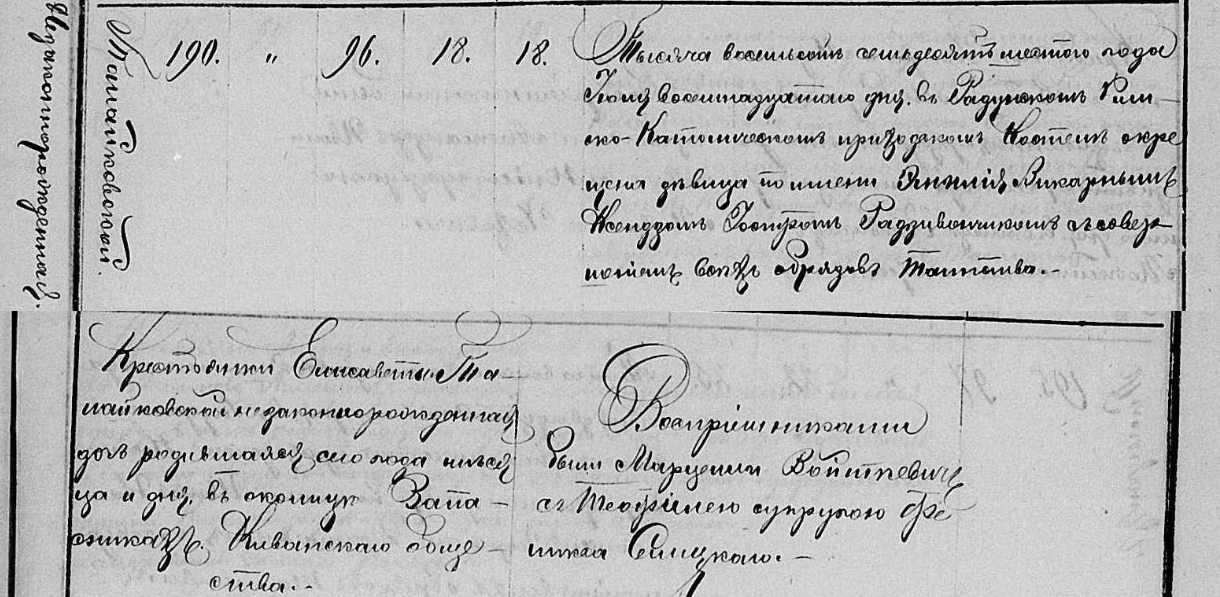 Незаконнорожденная.
190. „ 96. 18. 18.
Тысяча восемьсотъ семьдесятъ шестого года
Іюля восемнадцатаго дня. въ Радунскомъ Рим-
ско-Католическомъ приходскомъ Костелѣ окре
щена дѣвица по имени Викарнымъ
Ксендзомъ съ совер-
шеніемъ всѣхъ обрядовъ таинства.-
Крестьянки Елисаветы
незаконнорожденная
дочь родившаяся сего года мѣся
ца и дня, въ околицѣ Запа-
сникахъ. обще-
ства.-
Воспріемниками
были Марцелій Войткевичъ
съ Теофилею супругою Фе-
ликса